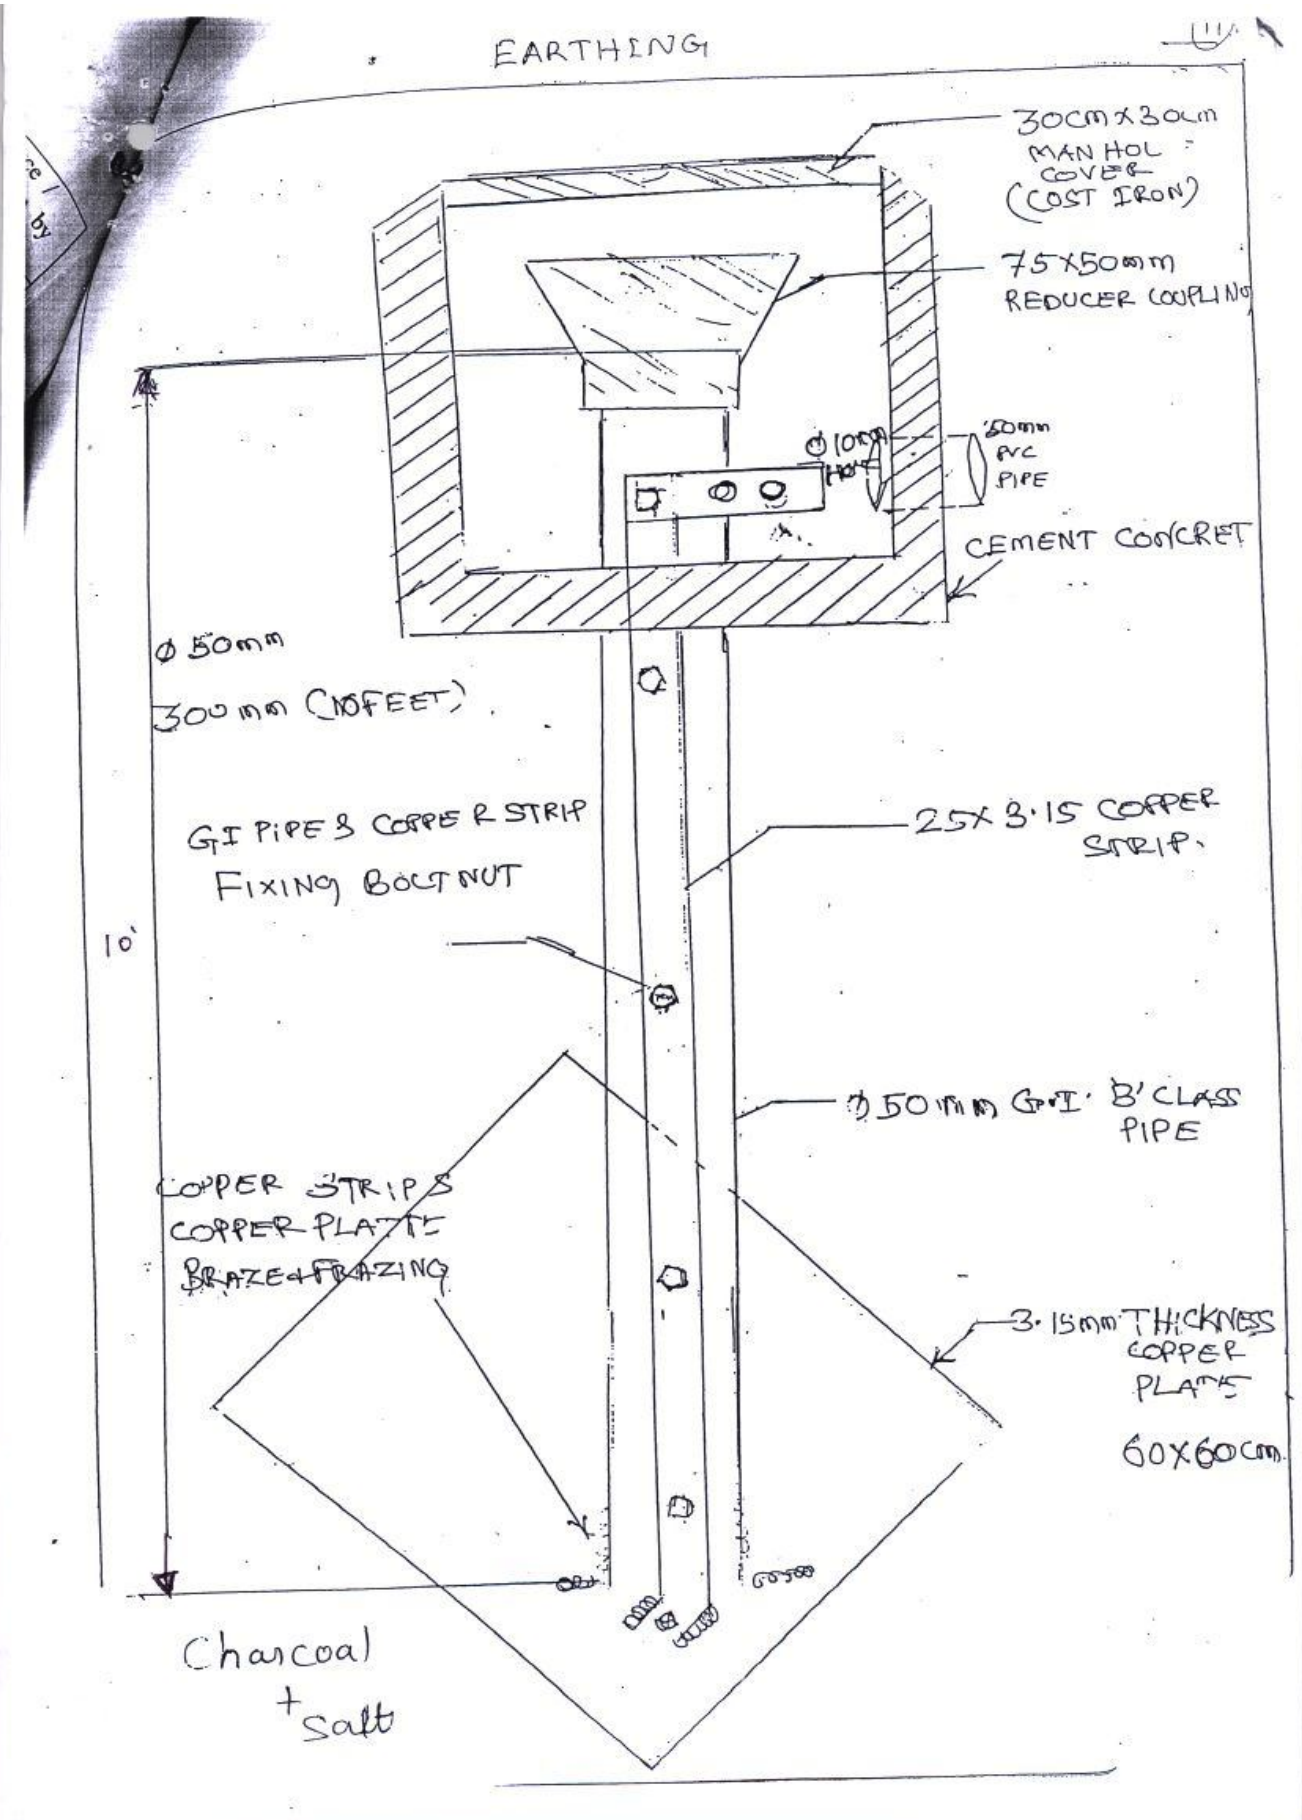 EARTHING
ce 1
by
30cm X 30cm
MAN HOL
COVER
(COST IRON)
75X50mm
REDUCER COUPLING
50mm
PVC
PIPE
CEMENT CONCRET
Ø 50mm
300mm (10FEET)
GI PIPE & COPPER STRIP
FIXING BOLT NUT
25X 3.15 COPPER
STRIP.
10'
50mm G.I. B'CLASS
PIPE
COPPER STRIP &
COPPER PLATE
3.15mm THICKNESS
COPPER
PLATE
60X60cm.
Charcoal
+
Salt